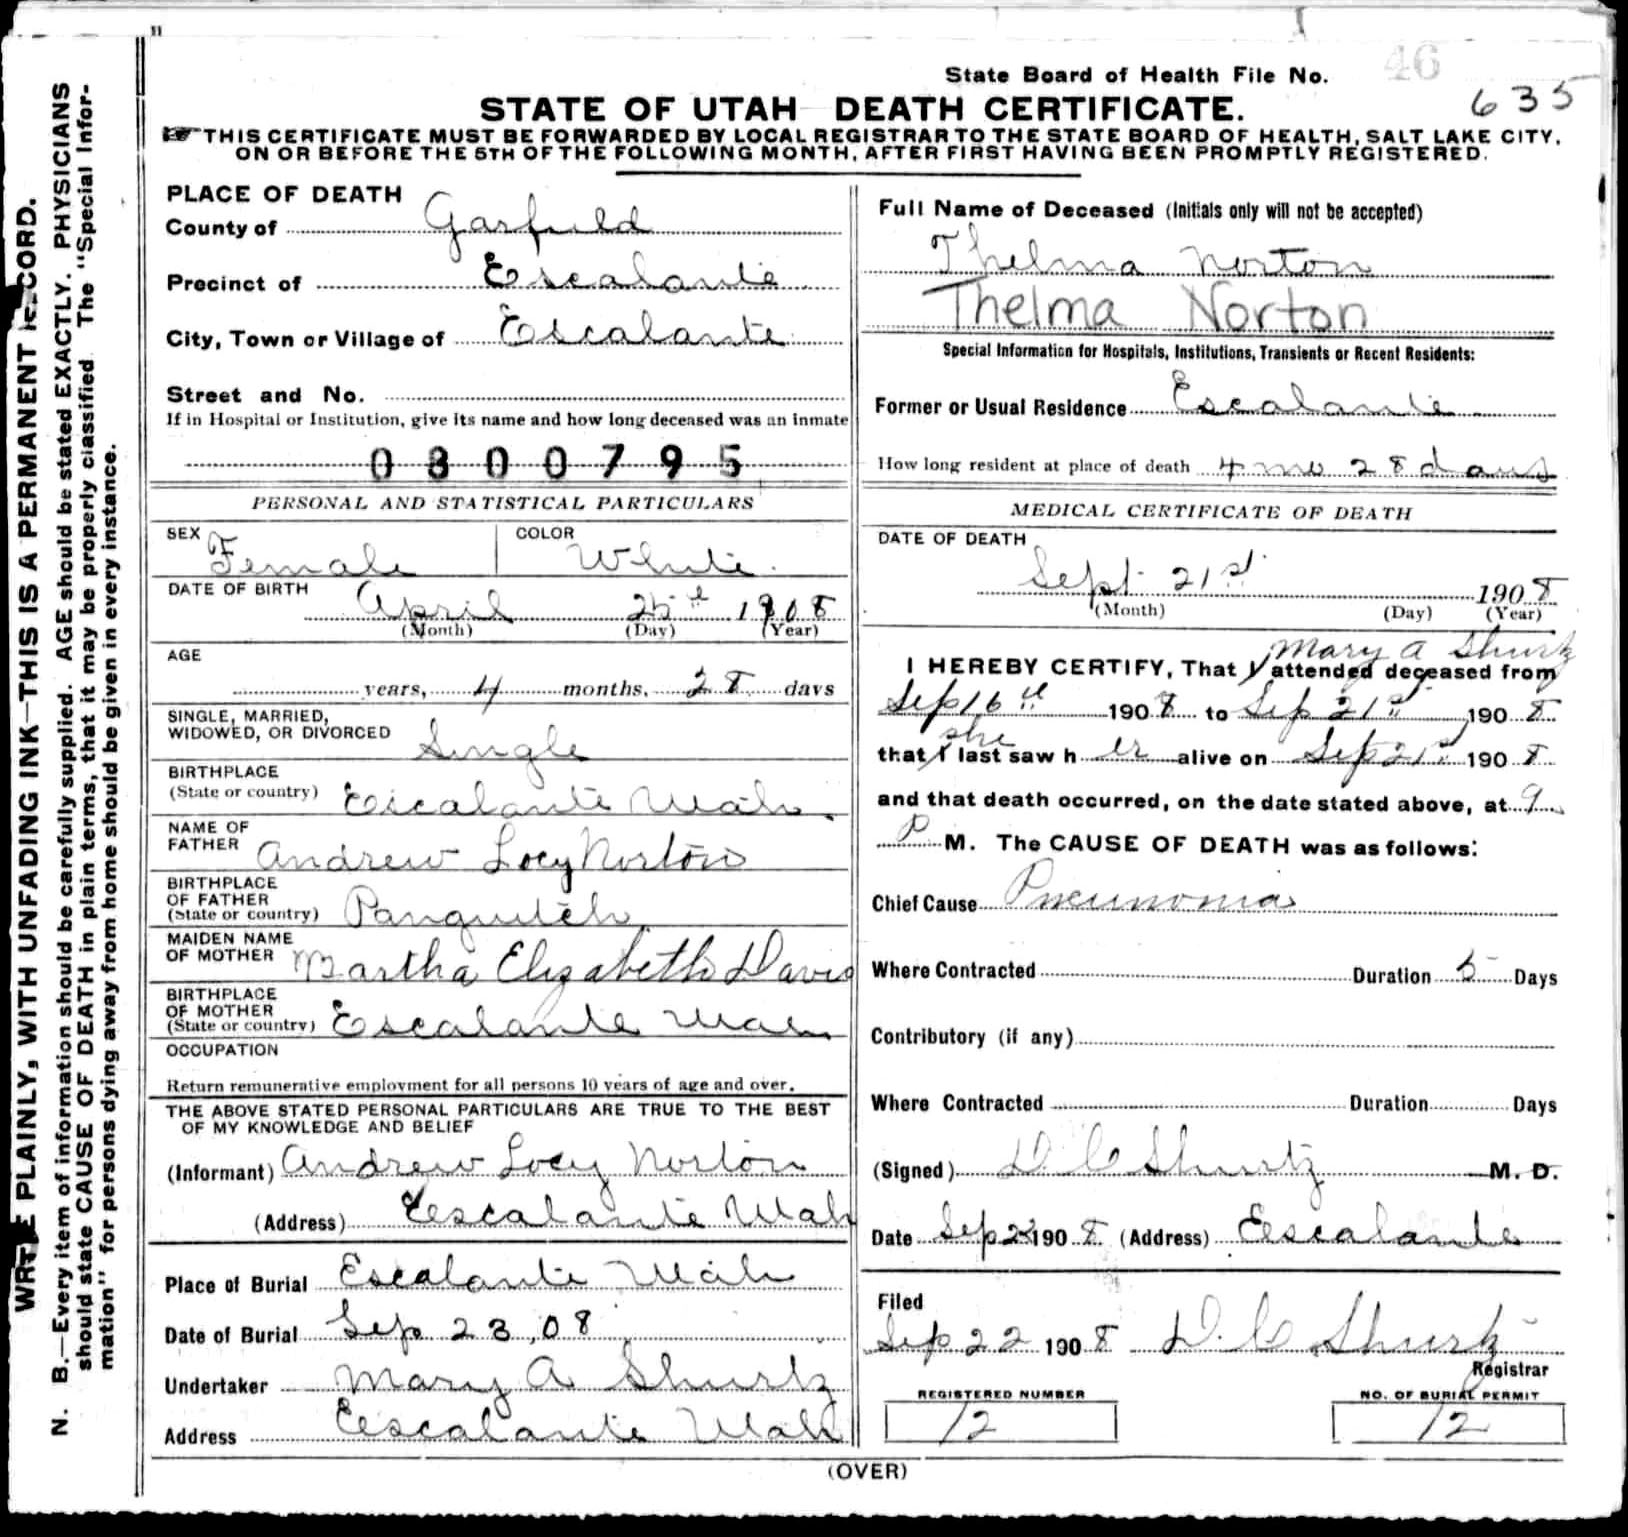 46
State Board of Health File No.
635
STATE OF UTAH DEATH CERTIFICATE.
THIS CERTIFICATE MUST BE FORWARDED BY LOCAL REGISTRAR TO THE STATE BOARD OF HEALTH, SALT LAKE CITY,
ON OR BEFORE THE 5TH OF THE FOLLOWING MONTH, AFTER FIRST HAVING BEEN PROMPTLY REGISTERED.
WRITE PLAINLY, WITH UNFADING INK—THIS IS A PERMANENT RECORD.
N. B.—Every item of information should be carefully supplied. AGE should be stated EXACTLY. PHYSICIANS
should state CAUSE OF DEATH in plain terms, that it may be properly classified. The "Special Infor-
mation" for persons dying away from home should be given in every instance.
PLACE OF DEATH
County of Garfield
Precinct of Escalante
City, Town or Village of Escalante
Street and No.
If in Hospital or Institution, give its name and how long deceased was an inmate
0300795
PERSONAL AND STATISTICAL PARTICULARS
SEX Female COLOR White
DATE OF BIRTH April 25th 1908
(Month) (Day) (Year)
AGE
years, 4 months, 28 days
SINGLE, MARRIED,
WIDOWED, OR DIVORCED Single
BIRTHPLACE
(State or country) Escalante Utah
NAME OF
FATHER Andrew Locy Norton
BIRTHPLACE
OF FATHER
(State or country) Panguitch
MAIDEN NAME
OF MOTHER Martha Elizabeth Davis
BIRTHPLACE
OF MOTHER
(State or country) Escalante Utah
OCCUPATION
Return remunerative employment for all persons 10 years of age and over.
THE ABOVE STATED PERSONAL PARTICULARS ARE TRUE TO THE BEST
OF MY KNOWLEDGE AND BELIEF
(Informant) Andrew Locy Norton
(Address) Escalante Utah
Place of Burial Escalante Utah
Date of Burial Sep 23, 08
Undertaker Mary A Shurtz
Address Escalante Utah
Full Name of Deceased (Initials only will not be accepted)
Thelma Norton
Thelma Norton
Special Information for Hospitals, Institutions, Transients or Recent Residents:
Former or Usual Residence Escalante
How long resident at place of death 4 mo 28 days
MEDICAL CERTIFICATE OF DEATH
DATE OF DEATH
Sept 21st 1908
(Month) (Day) (Year)
Mary A Shurtz
I HEREBY CERTIFY, That I attended deceased from
Sep 16th 1908 to Sep 21st 1908
she
that I last saw her alive on Sep 21st 1908
and that death occurred, on the date stated above, at 9
P M. The CAUSE OF DEATH was as follows:
Chief Cause Pneumonia
Where Contracted Duration 5 Days
Contributory (if any)
Where Contracted Duration Days
(Signed) D. C Shurtz M. D.
Date Sep 1908 (Address) Escalante
Filed
Sep 22 1908 D. C Shurtz
Registrar
REGISTERED NUMBER NO. OF BURIAL PERMIT
12 12
(OVER)